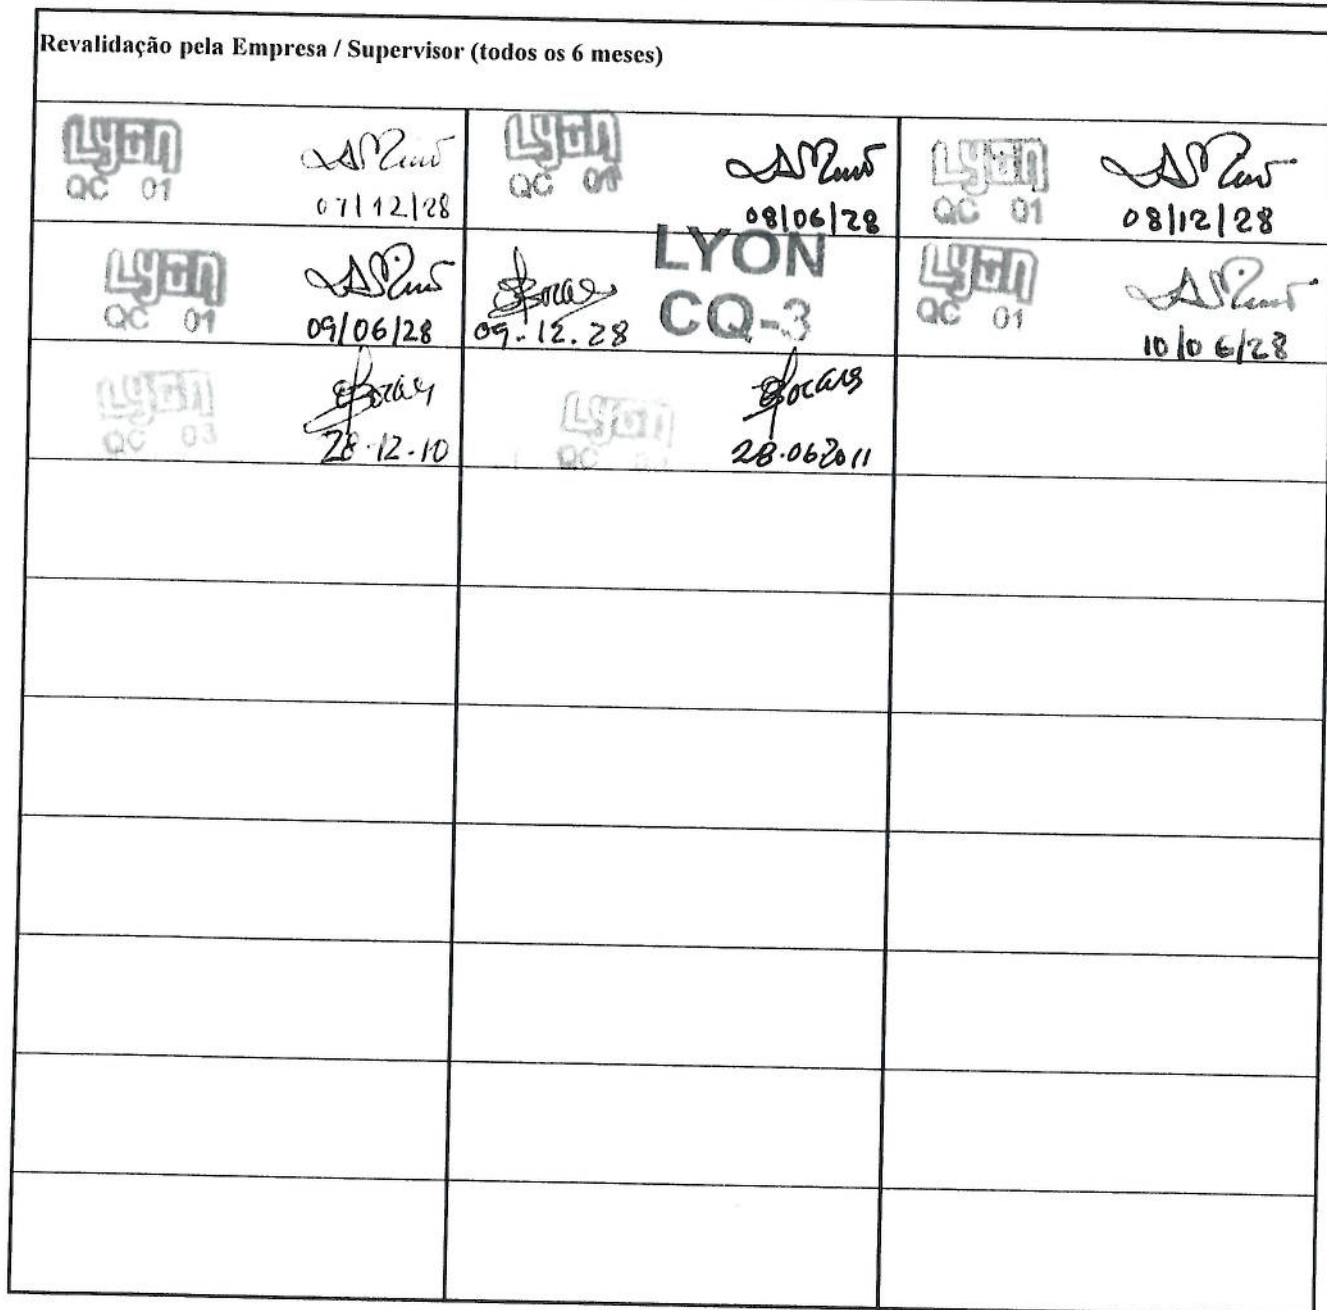 Revalidação pela Empresa / Supervisor (todos os 6 meses)
Lyon
QC 01
07/12/28
Lyon
QC 01
08/06/28
Lyon
QC 01
08/12/28
Lyon
QC 01
09/06/28
09.12.28
LYON
CQ-3
Lyon
QC 01
10/06/28
Lyon
QC 03
28.12.10
Lyon
QC
28.062011